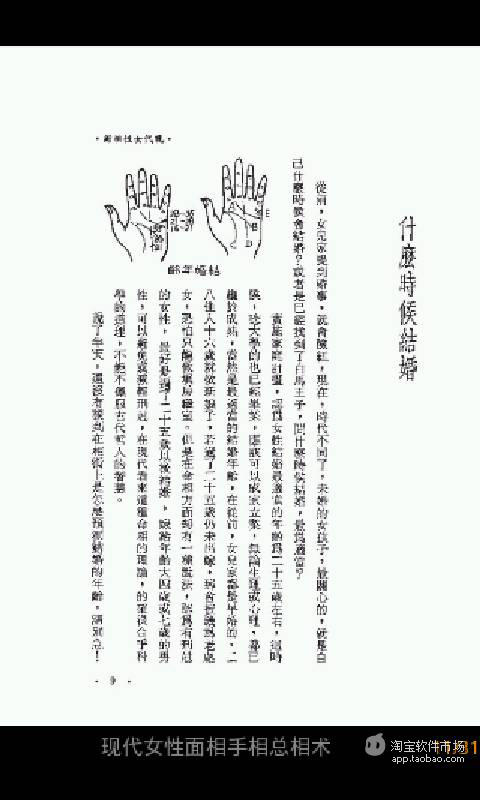 什麼時候結婚
從前，女兒家提到婚事，就會臉紅，現在，時代不同了，未婚的女孩子，最關心的，就是自
己什麼時候會結婚？或者是已經找到了白馬王子，問什麼時候結婚，最爲適當？
實施家庭計畫，認爲女性結婚最適當的年齡爲二十五歲左右，這時
候，唸大學的也已經畢業，應該可以成家立業，無論生理或心理，都已
趨於成熟，當然是最適當的結婚年齡，在從前，女兒家都是早婚的，二
八佳人十六歲就做新娘了，若過了二十五歲仍未出嫁，將會被認爲老處
女，恐怕只能做填房繼室。但是在命相方面却有一種說法，認爲有刑尅
的女性，最好是過了二十五歲以後結婚，嫁給年齡大四歲或七歲的男
性，可以避免或減輕刑尅，在現代看來這種命相的理論，的確很合乎科
學的道理，不能不佩服古代哲人的智慧。
說了半天，還沒有談到在相術上是怎樣預測結婚的年齡，請別急！
相性女代現
齡年婚結
E
B
D
- 9 -
现代女性面相手相总相术
淘宝软件市场
app.taobao.com